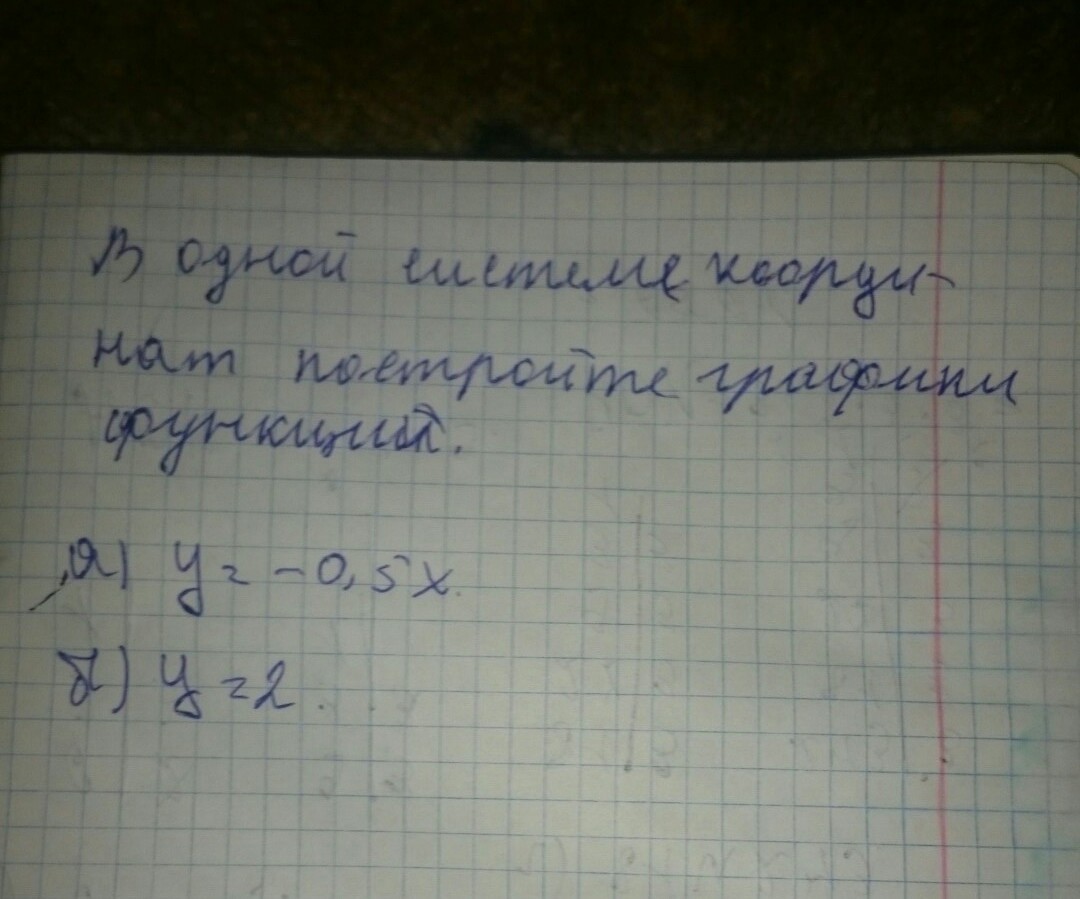 В одной системе коорди-
нат постройте графики
функций.
а) y = -0,5x.
б) y = 2.